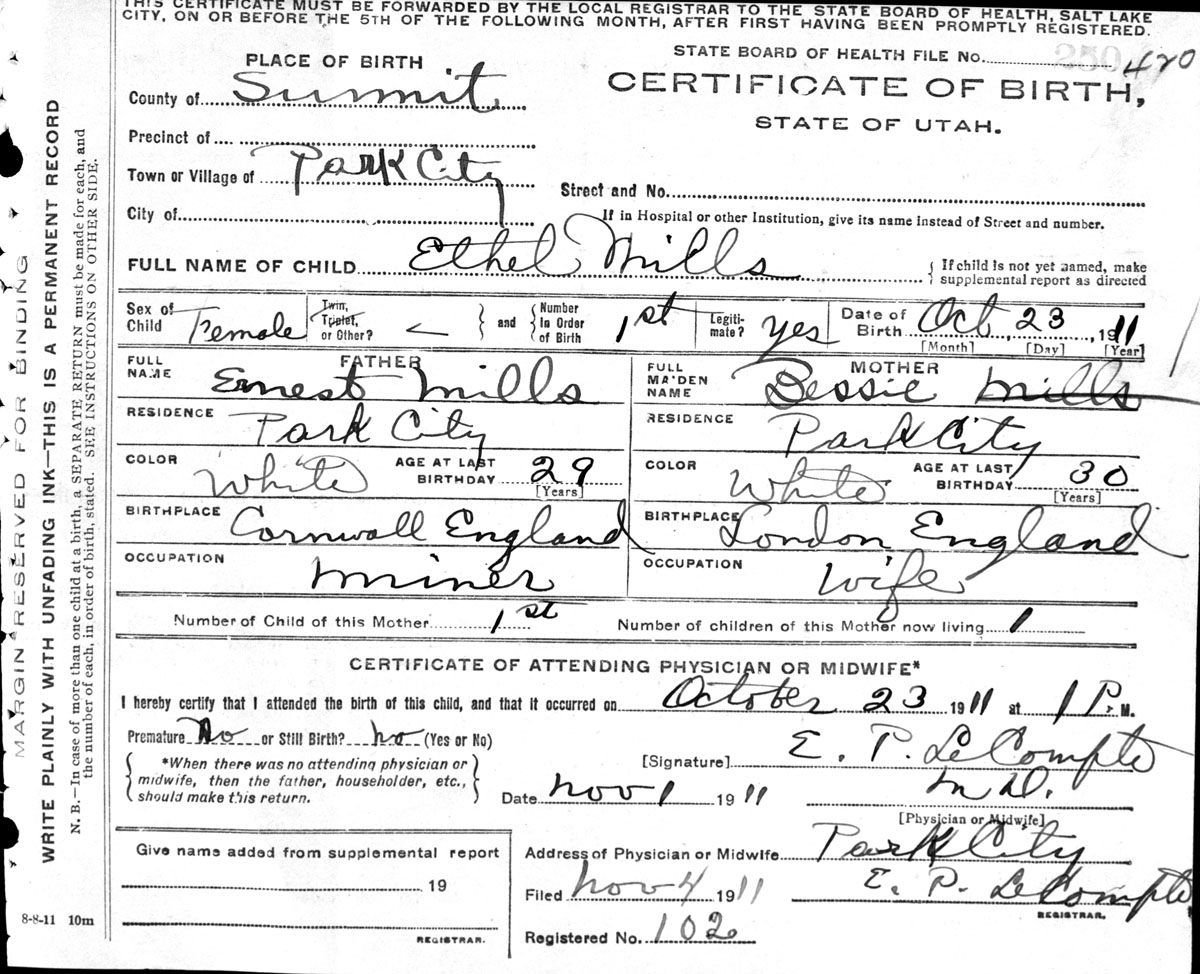 THIS CERTIFICATE MUST BE FORWARDED BY THE LOCAL REGISTRAR TO THE STATE BOARD OF HEALTH, SALT LAKE
CITY, ON OR BEFORE THE 5TH OF THE FOLLOWING MONTH, AFTER FIRST HAVING BEEN PROMPTLY REGISTERED.
STATE BOARD OF HEALTH FILE No. 250 420
PLACE OF BIRTH
CERTIFICATE OF BIRTH,
STATE OF UTAH.
County of Summit
Precinct of
Town or Village of Park City
Street and No.
City of
If in Hospital or other Institution, give its name instead of Street and number.
FULL NAME OF CHILD Ethel Mills
{ If child is not yet named, make
supplemental report as directed
Sex of Child Female
Twin, Triplet, or Other?
and { Number In Order of Birth 1st
Legiti-mate? Yes
Date of Birth Oct 23, 1911
[Month] [Day] [Year]
FATHER
FULL NAME Ernest Mills
MOTHER
FULL MAIDEN NAME Bessie Mills
RESIDENCE Park City
RESIDENCE Park City
COLOR White AGE AT LAST BIRTHDAY 29 [Years]
COLOR White AGE AT LAST BIRTHDAY 30 [Years]
BIRTHPLACE Cornwall England
BIRTHPLACE London England
OCCUPATION Miner
OCCUPATION Wife
Number of Child of this Mother 1st
Number of children of this Mother now living 1
CERTIFICATE OF ATTENDING PHYSICIAN OR MIDWIFE*
I hereby certify that I attended the birth of this child, and that it occurred on October 23 1911 at 1 P. M.
Premature No or Still Birth? no (Yes or No)
{ *When there was no attending physician or
midwife, then the father, householder, etc.,
should make this return. }
[Signature] E. P. LeCompte
M D.
[Physician or Midwife]
Date Nov 1 1911
Give name added from supplemental report
19
REGISTRAR.
Address of Physician or Midwife Park City
Filed Nov 4 1911
E. P. LeCompte
REGISTRAR.
Registered No. 102
8-8-11 10m
MARGIN RESERVED FOR BINDING
WRITE PLAINLY WITH UNFADING INK—THIS IS A PERMANENT RECORD
N. B.—In case of more than one child at a birth, a SEPARATE RETURN must be made for each, and
the number of each, in order of birth, stated. SEE INSTRUCTIONS ON OTHER SIDE.